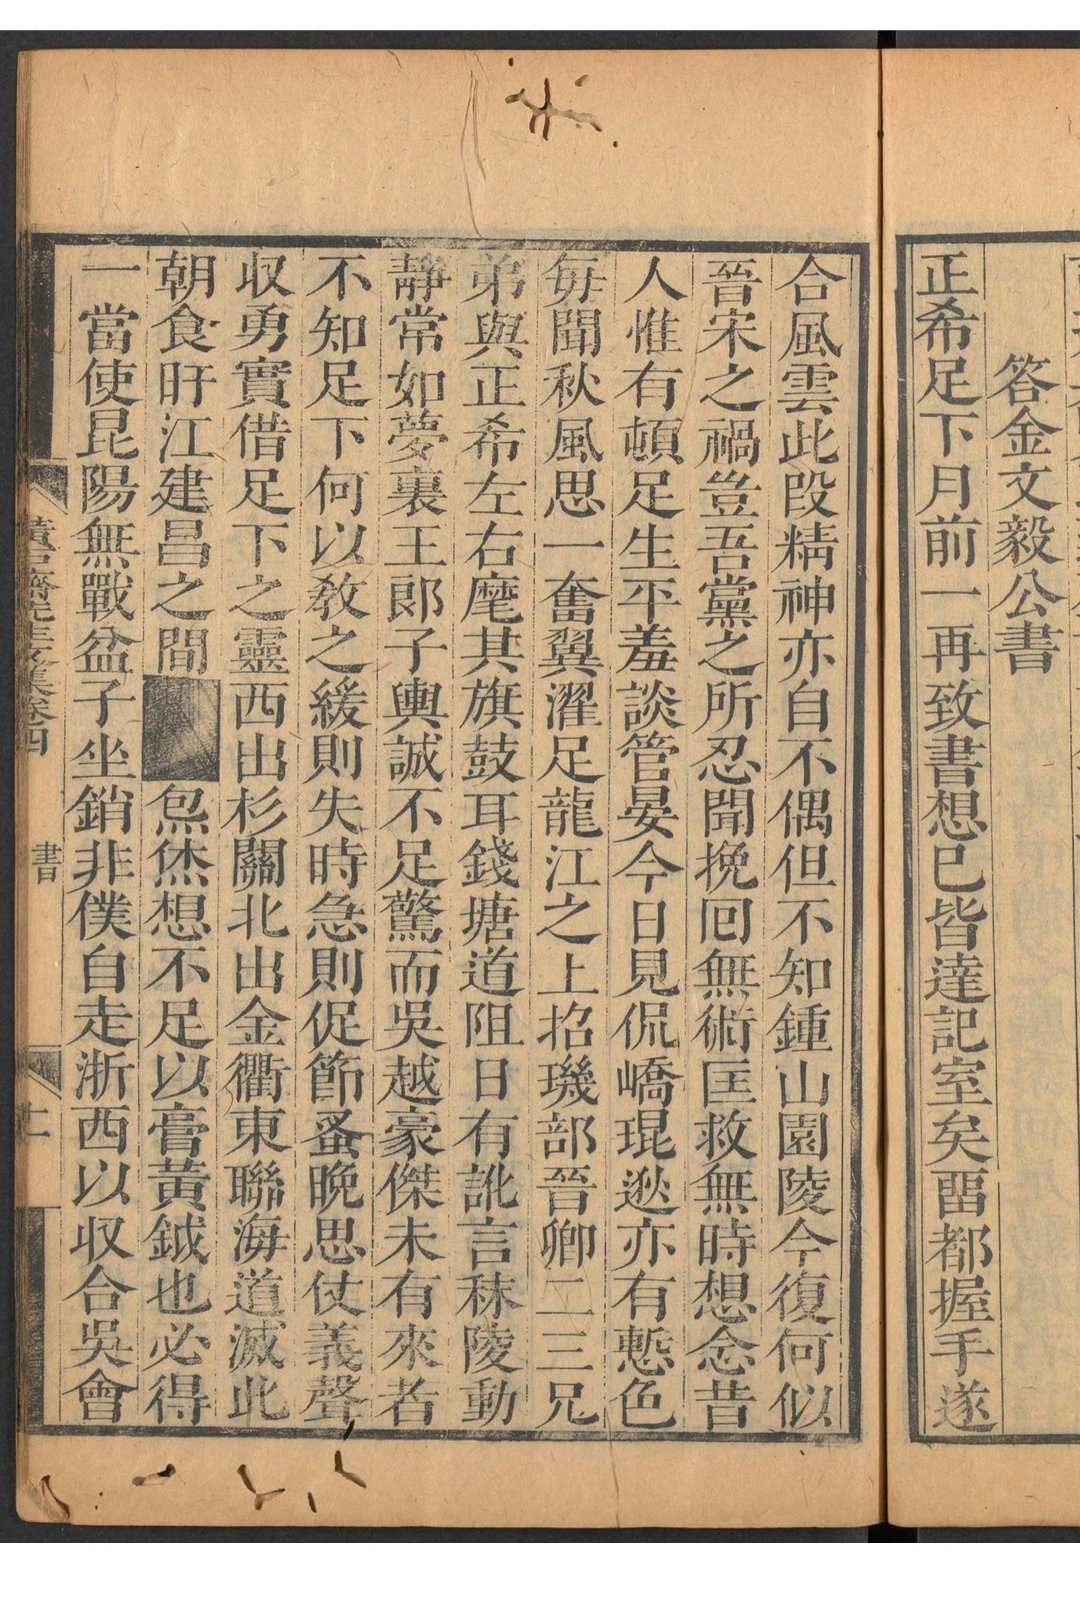 答金文毅公書
正希足下月前一再致書想已皆達記室矣畱都握手遂
合風雲此段精神亦自不偶但不知鍾山園陵今復何似
晉宋之禍豈吾黨之所忍聞挽囘無術匡救無時想念昔
人惟有頓足生平羞談管晏今日見侃嶠琨逖亦有慙色
每聞秋風思一奮翼濯足龍江之上招璣部晉卿二三兄
弟與正希左右麾其旗鼓耳錢塘道阻日有訛言秣陵動
靜常如夢裏王郞子輿誠不足驚而吳越豪傑未有來者
不知足下何以敎之緩則失時急則促節蚤晚思仗義聲
収勇實借足下之靈西出杉關北出金衢東聯海道滅此
朝食旴江建昌之間■■炰烋想不足以膏黃鉞也必得
一當使昆陽無戰盆子坐銷非僕自走浙西以収合吳會
黃石齋先生文集卷四
書
十一